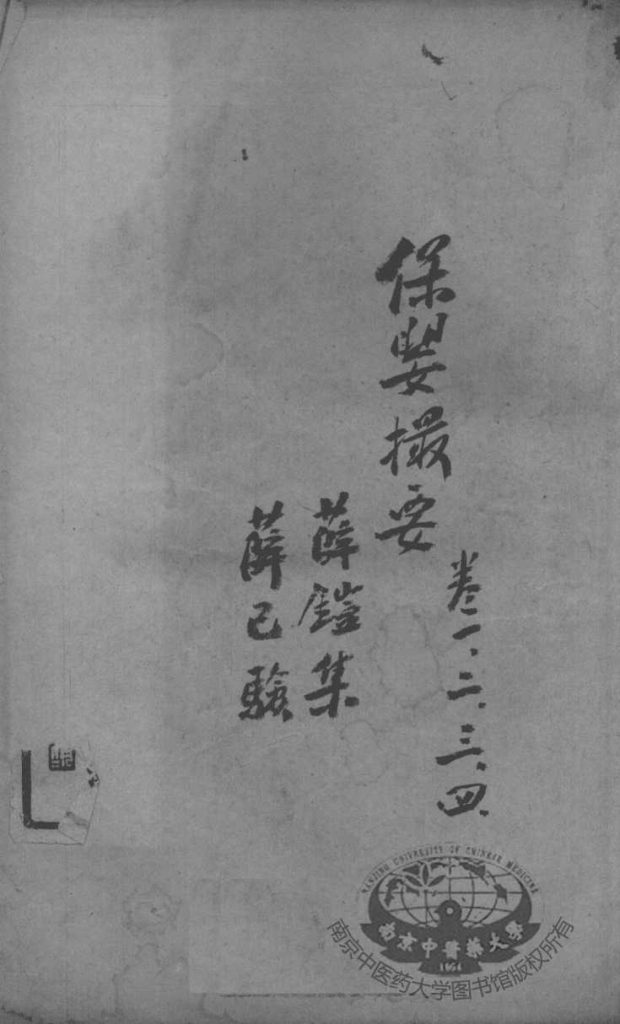 保嬰撮要
卷一、二、三、四、
薛鎧集
薛己驗
NANJING UNIVERSITY OF CHINESE MEDICINE
南京中醫藥大學
1954
南京中医药大学图书馆版权所有